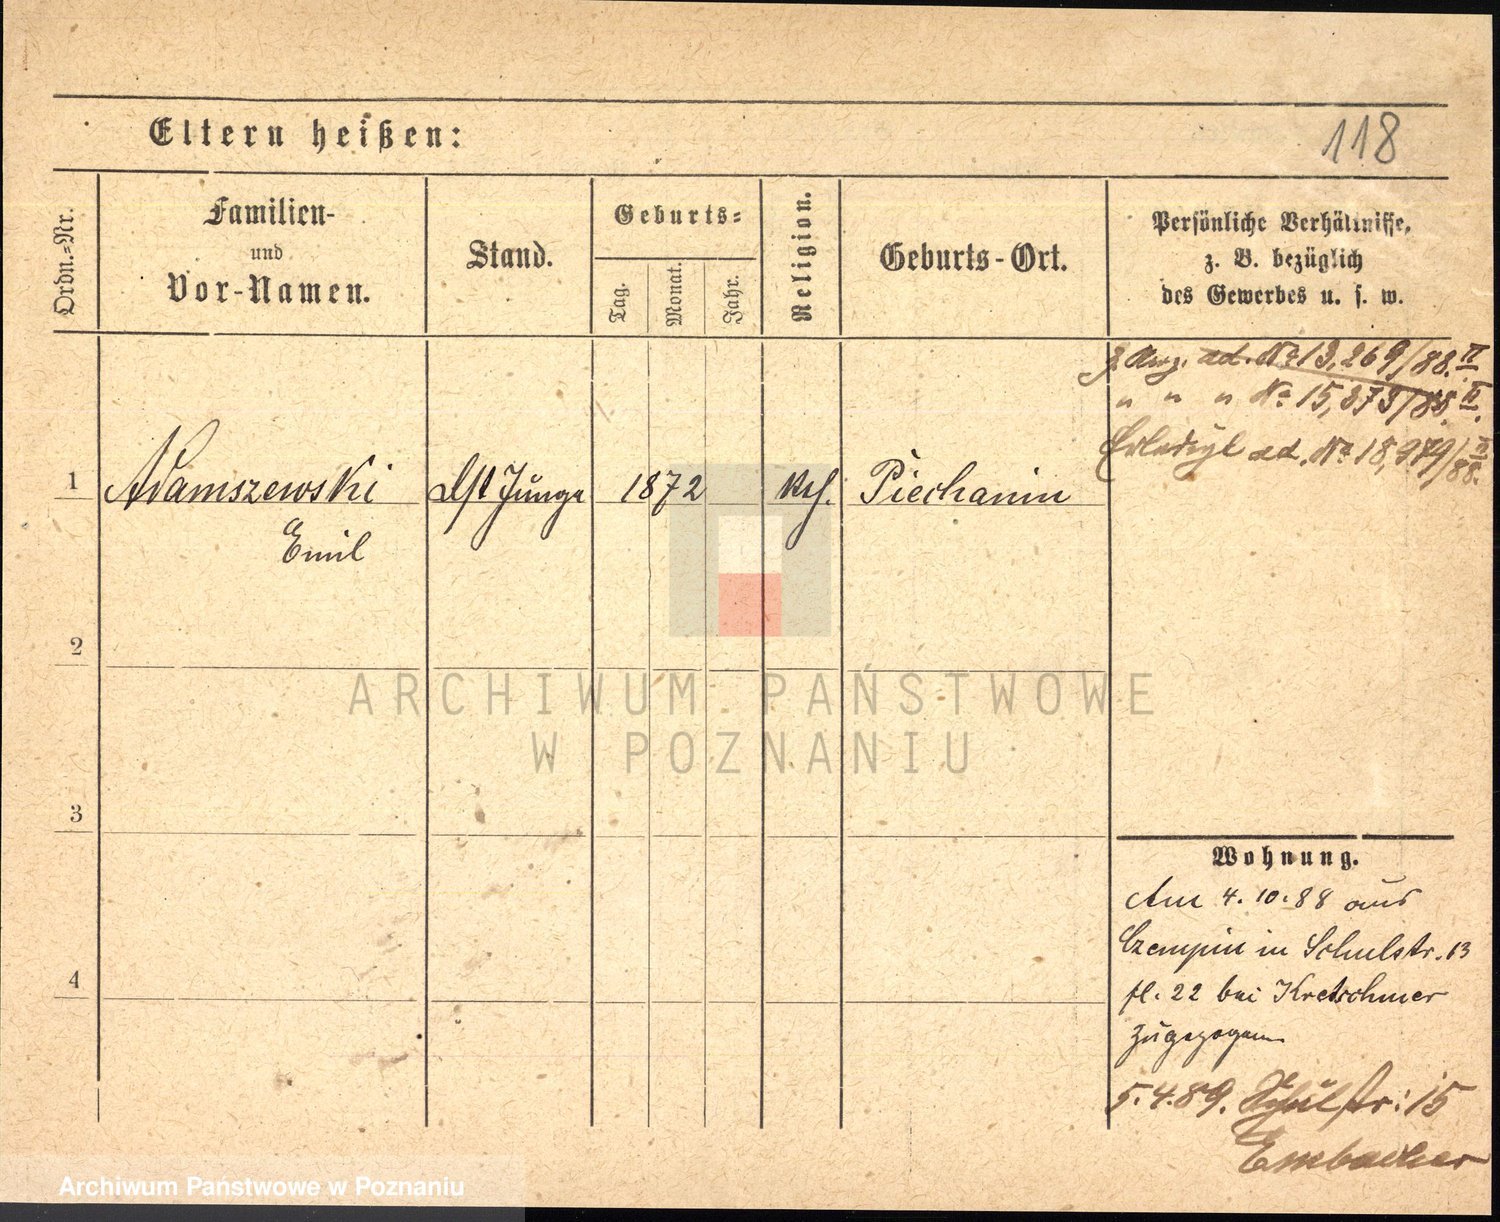 118
Eltern heißen:
Ordn.=Nr.
Familien-
und
Vor-Namen.
Stand.
Geburts=
Tag.
Monat.
Jahr.
Religion.
Geburts-Ort.
Persönliche Verhältnisse,
z. B. bezüglich
des Gewerbes u. s. w.
ad. No 13,269/88. II
" " " No 15,873/88. II.
Erledigt ad. No 18,979/88. II
1 Adamszewski Junge 1872 Piechanin
Emil
2
3
4
Wohnung.
Am 4. 10. 88 aus
Czempin in Schulstr. 13
fl. 22 bei Kretschmer
zugezogen
5. 4. 89. Schulstr: 15
Embacher
ARCHIWUM PAŃSTWOWE
W POZNANIU
Archiwum Państwowe w Poznaniu